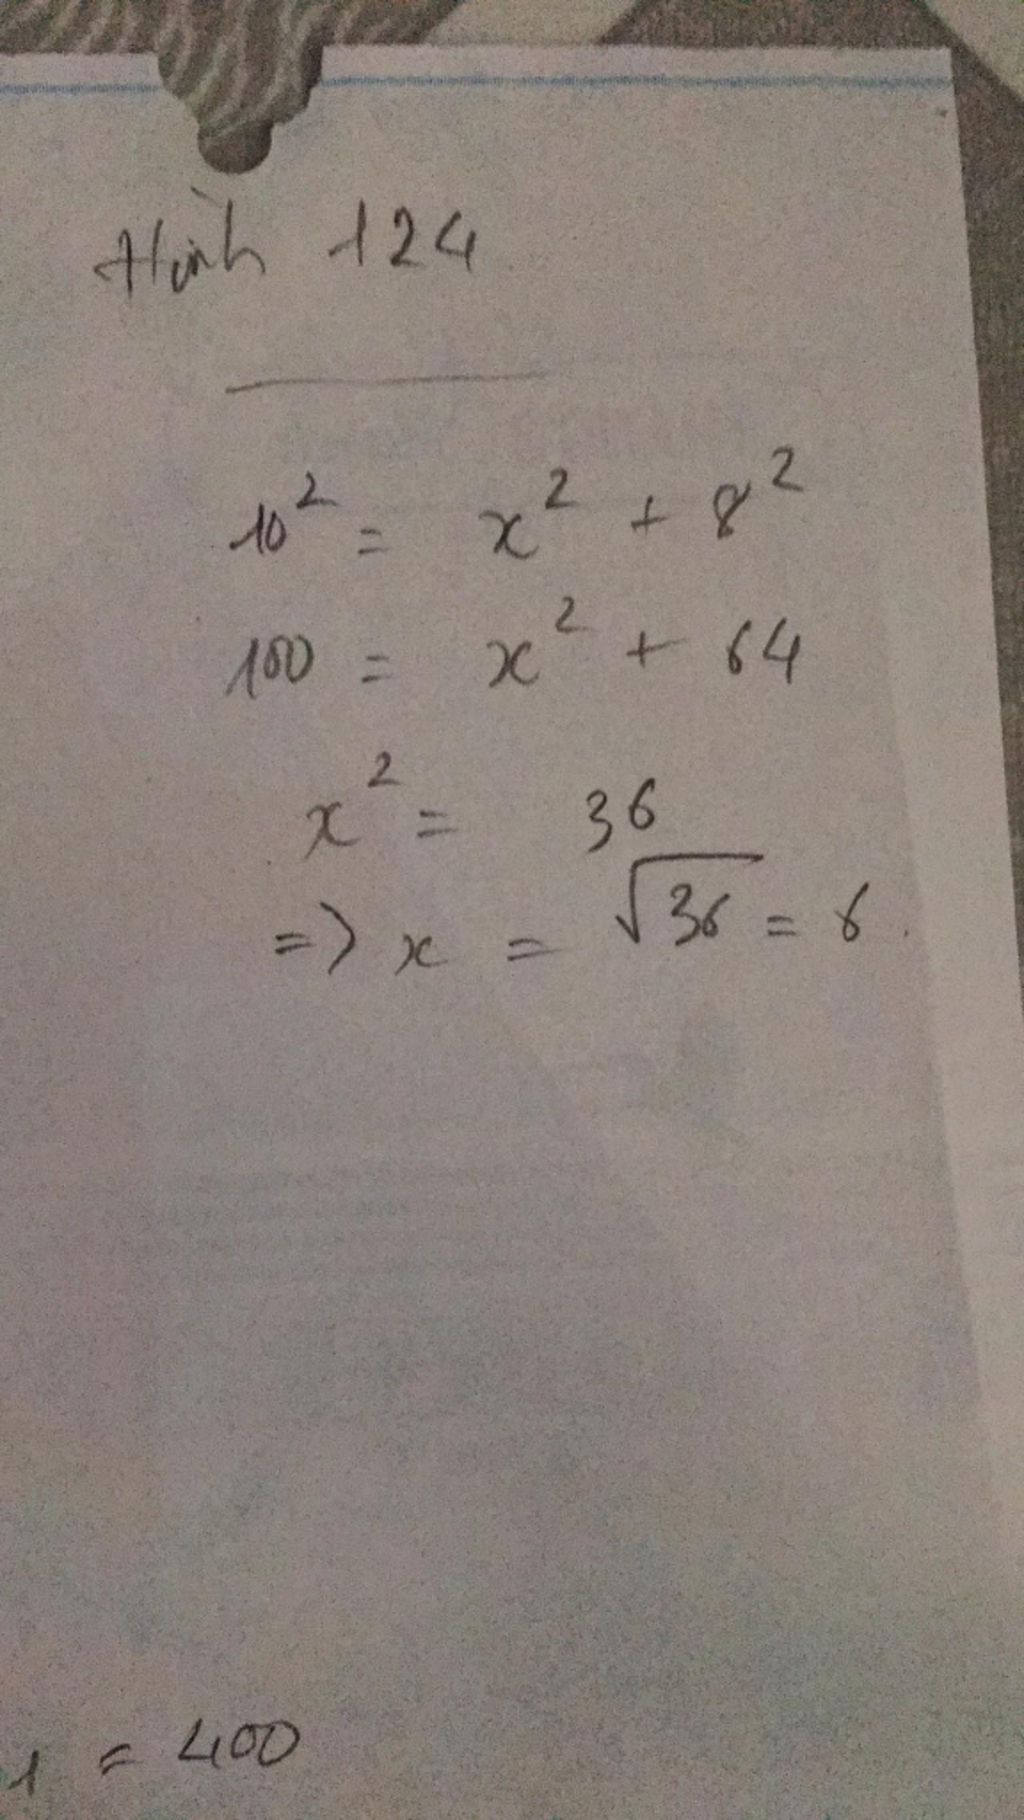 Hình 124
10² = x² + 8²
100 = x² + 64
x² = 36
=> x = √36 = 6.
1 = 400